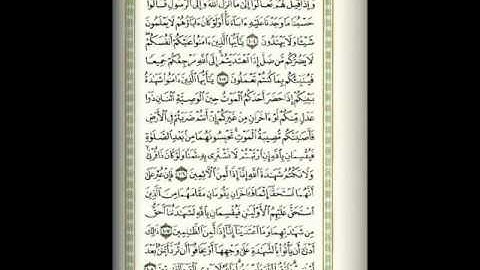 وَإِذَا قِيلَ لَهُمْ تَعَالَوْا۟ إِلَىٰ مَآ أَنزَلَ ٱللَّهُ وَإِلَى ٱلرَّسُولِ قَالُوا۟
حَسْبُنَا مَا وَجَدْنَا عَلَيْهِ ءَابَآءَنَآ أَوَلَوْ كَانَ ءَابَآؤُهُمْ لَا يَعْلَمُونَ
شَيْـًٔا وَلَا يَهْتَدُونَ ١٠٤ يَـٰٓأَيُّهَا ٱلَّذِينَ ءَامَنُوا۟ عَلَيْكُمْ أَنفُسَكُمْ
لَا يَضُرُّكُم مَّن ضَلَّ إِذَا ٱهْتَدَيْتُمْ إِلَى ٱللَّهِ مَرْجِعُكُمْ جَمِيعًا
فَيُنَبِّئُكُم بِمَا كُنتُمْ تَعْمَلُونَ ١٠٥ يَـٰٓأَيُّهَا ٱلَّذِينَ ءَامَنُوا۟ شَهَـٰدَةُ
بَيْنِكُمْ إِذَا حَضَرَ أَحَدَكُمُ ٱلْمَوْتُ حِينَ ٱلْوَصِيَّةِ ٱثْنَانِ ذَوَا
عَدْلٍ مِّنكُمْ أَوْ ءَاخَرَانِ مِنْ غَيْرِكُمْ إِنْ أَنتُمْ ضَرَبْتُمْ فِى ٱلْأَرْضِ
فَأَصَـٰبَتْكُم مُّصِيبَةُ ٱلْمَوْتِ تَحْبِسُونَهُمَا مِنۢ بَعْدِ ٱلصَّلَوٰةِ
فَيُقْسِمَانِ بِٱللَّهِ إِنِ ٱرْتَبْتُمْ لَا نَشْتَرِى بِهِۦ ثَمَنًا وَلَوْ كَانَ ذَا قُرْبَىٰ
وَلَا نَكْتُمُ شَهَـٰدَةَ ٱللَّهِ إِنَّآ إِذًا لَّمِنَ ٱلْـَٔاثِمِينَ ١٠٦ فَإِنْ عُثِرَ عَلَىٰٓ
أَنَّهُمَا ٱسْتَحَقَّآ إِثْمًا فَـَٔاخَرَانِ يَقُومَانِ مَقَامَهُمَا مِنَ ٱلَّذِينَ
ٱسْتَحَقَّ عَلَيْهِمُ ٱلْأَوْلَيَـٰنِ فَيُقْسِمَانِ بِٱللَّهِ لَشَهَـٰدَتُنَآ أَحَقُّ
مِن شَهَـٰدَتِهِمَا وَمَا ٱعْتَدَيْنَآ إِنَّآ إِذًا لَّمِنَ ٱلظَّـٰلِمِينَ ١٠٧ ذَٰلِكَ
أَدْنَىٰٓ أَن يَأْتُوا۟ بِٱلشَّهَـٰدَةِ عَلَىٰ وَجْهِهَآ أَوْ يَخَافُوٓا۟ أَن تُرَدَّ أَيْمَـٰنٌۢ بَعْدَ